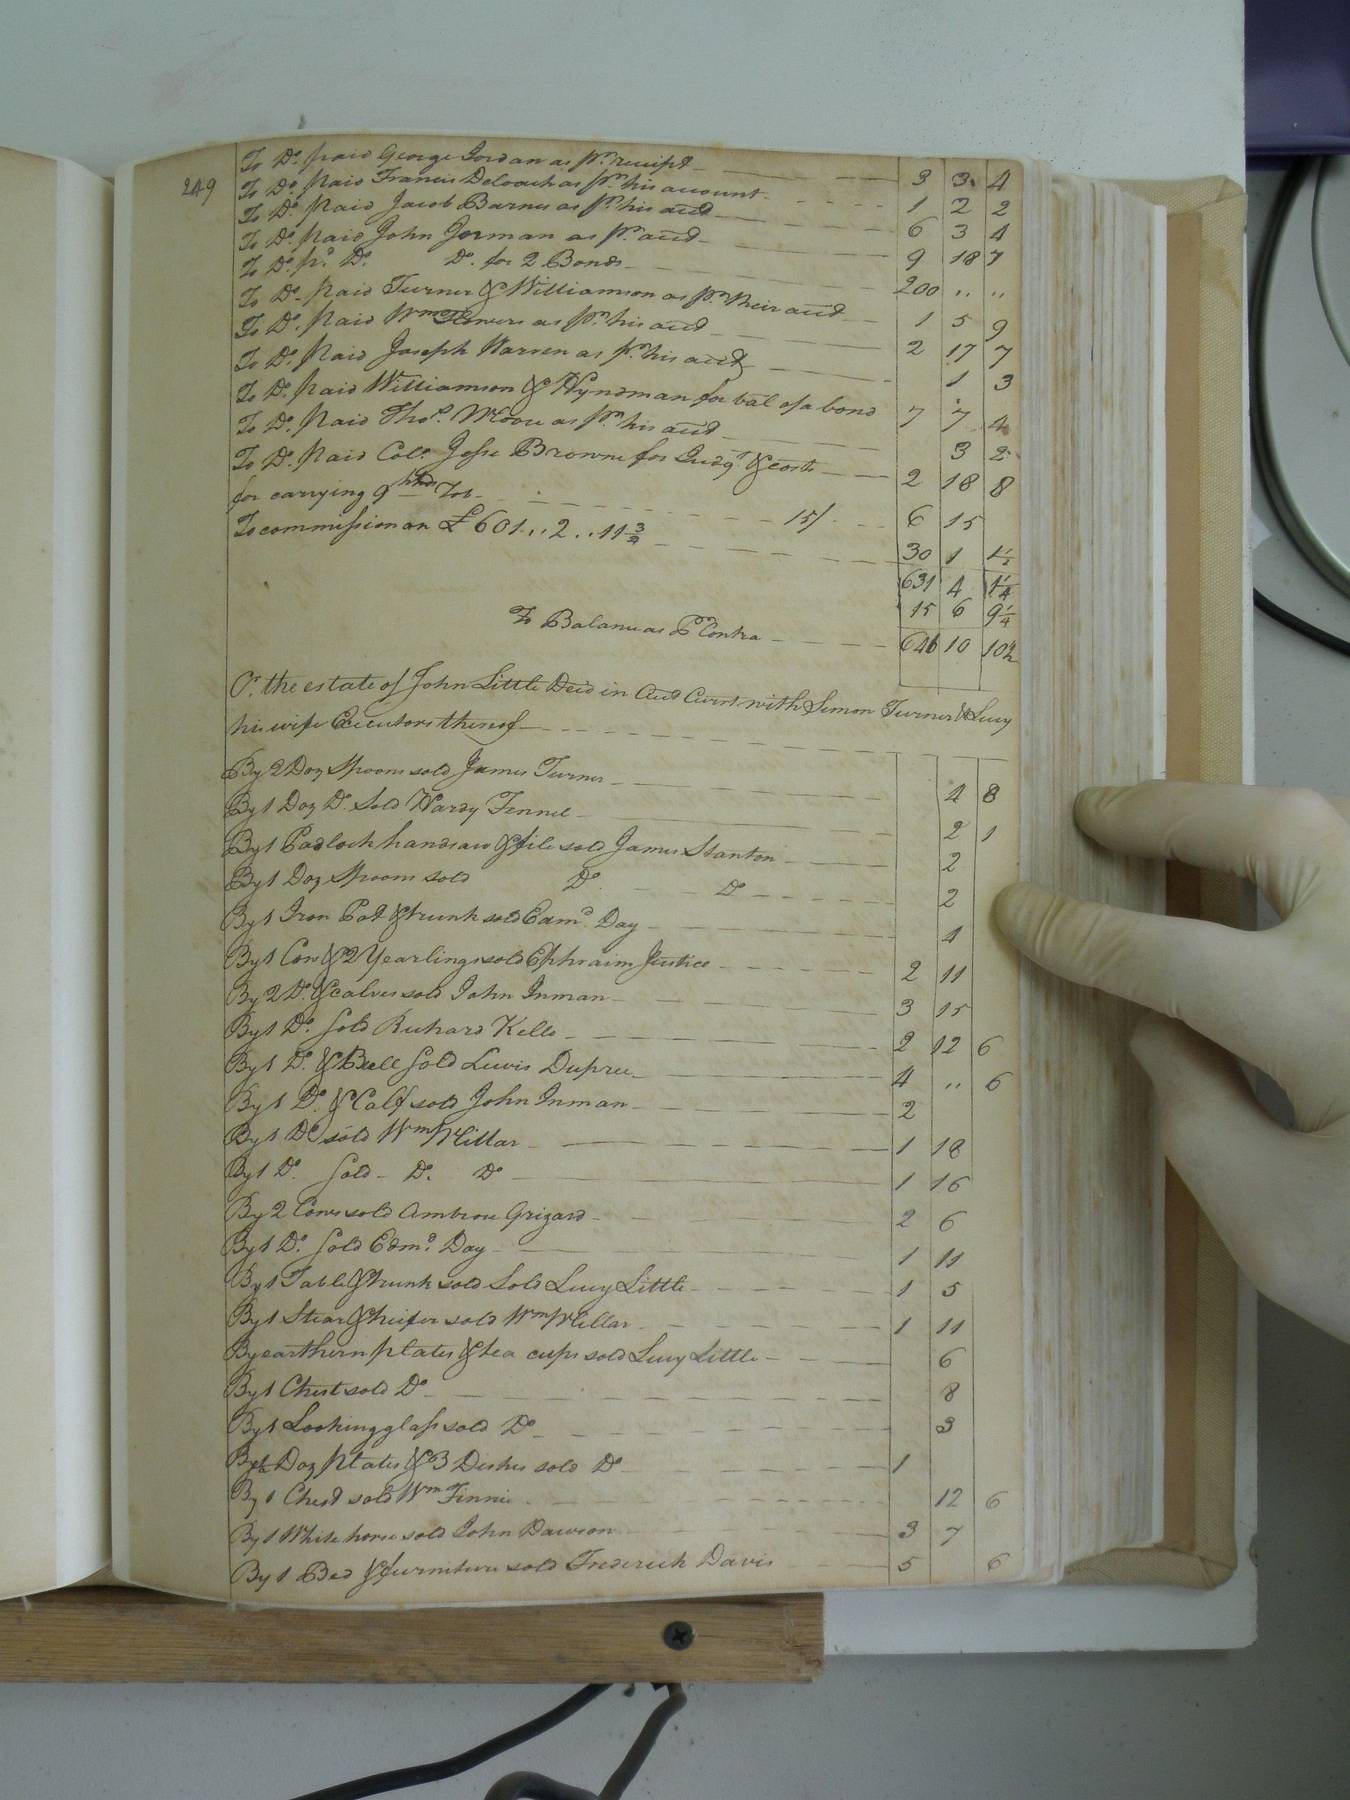 249
To Do. paid George Jordan as pr. receipt 3 3 4
To Do. paid Francis Deloach as pr. his account 1 2 2
To Do. paid Jacob Barnes as pr. his acct 6 3 4
To Do. paid John Jorman as pr. acct 9 18 7
To Do. pd. Do. Do. for 2 Bonds 200 .. ..
To Do. paid Turner & Williamson as pr. their acct 1 5 9
To Do. paid Wm. Flowers as pr. his acct 2 17 7
To Do. paid Joseph Warren as pr. his acct 1 3
To Do. paid Williamson & Hyndman for bal of a bond 7 7 4
To Do. paid Thos. Moore as pr. his acct 3 2
To Do. paid Colo. Jesse Browne for Judgt. & costs 2 18 8
for carrying 9 hhds Tob. 15/ 6 15
To commission on £601..2..11¾ 30 1 1½
631 4 1¼
15 6 9¼
To Balance as Pr Contra 646 10 10½
Cr. the estate of John Little Decd in Acct Currt with Simon Turner & Lucy
his wife Executors thereof
By 2 Doz Spoons sold James Turner 4 8
By 1 Doz Do. Sold Hardy Finnel 2 1
By 1 Padlock handsaw & file sold James Stanton 2
By 1 Doz Spoons sold Do. Do 2
By 1 Iron Pot & trunk sold Edmd. Day 4
By 1 Cow & 2 Yearlings sold Ephraim Justice 2 11
By 2 Do. & calves sold John Inman 3 15
By 1 Do. Sold Richard Kello 2 12 6
By 1 Do. & Bull Sold Lewis Dupree 4 .. 6
By 1 Do. & Calf sold John Inman 2
By 1 Do sold Wm Millar 1 18
By 1 Do. Sold Do. Do 1 16
By 2 Cows sold Ambrose Grizard 2 6
By 1 Do. Sold Edmd. Day 1 11
By 1 Table & trunk sold Sold Lucy Little 1 5
By 1 Stear & heifer sold Wm Millar 1 11
By earthern plates & tea cups sold Lucy Little 6
By 1 Chest sold Do 8
By 1 Looking glass sold Do 3
By ½ Doz plates & 3 Dishes sold Do 1
By 1 Chest sold Wm Finnie 12 6
By 1 White horse sold John Dawson 3 7
By 1 Bed & furniture sold Frederick Davis 5 6